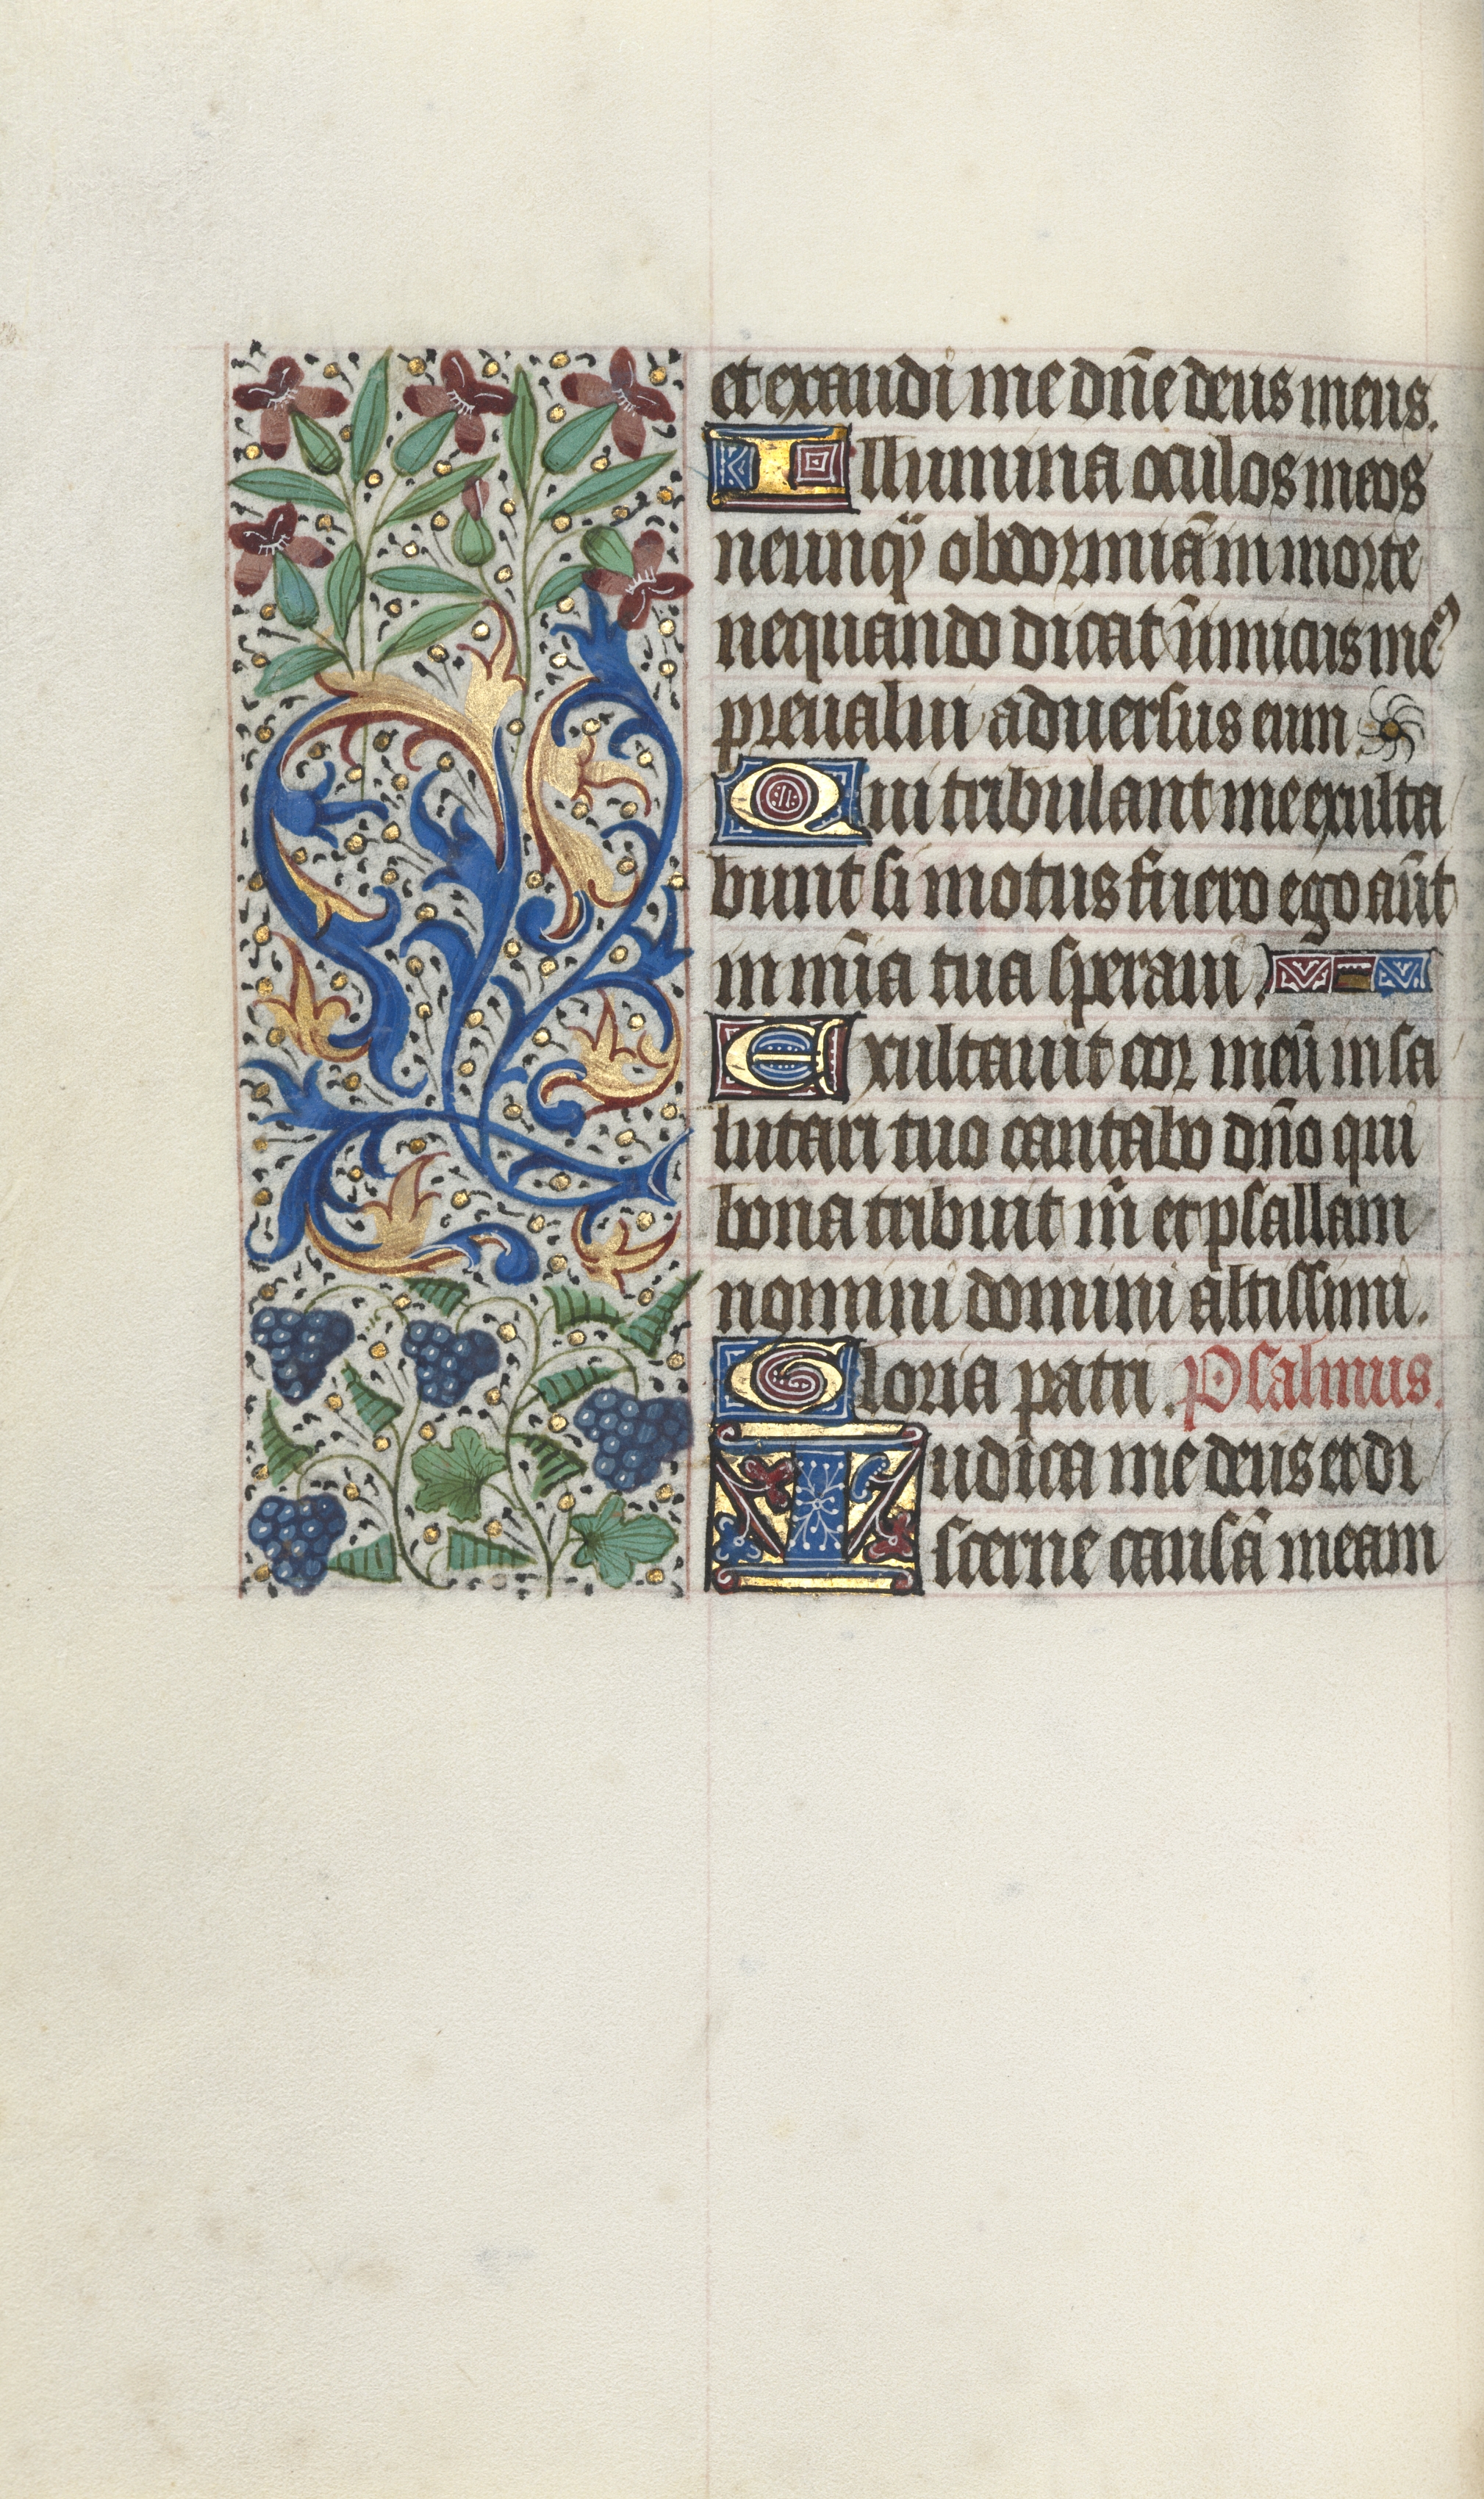 et exaudi me dn̄e deus meus.
Illumina oculos meos
ne unqȝ obdormiā in morte
nequando dicat inimicus meꝰ
preualui aduersus eum
Qui tribulant me exulta
bunt si motus fuero ego aūt
in mīa tua speraui.
Exultauit cor meū in sa
lutari tuo cantabo dn̄o qui
bona tribuit m̄ et psallam
nomini domini altissimi.
Gloria patri. Psalmus.
Iudica me deus et di
scerne causā meam